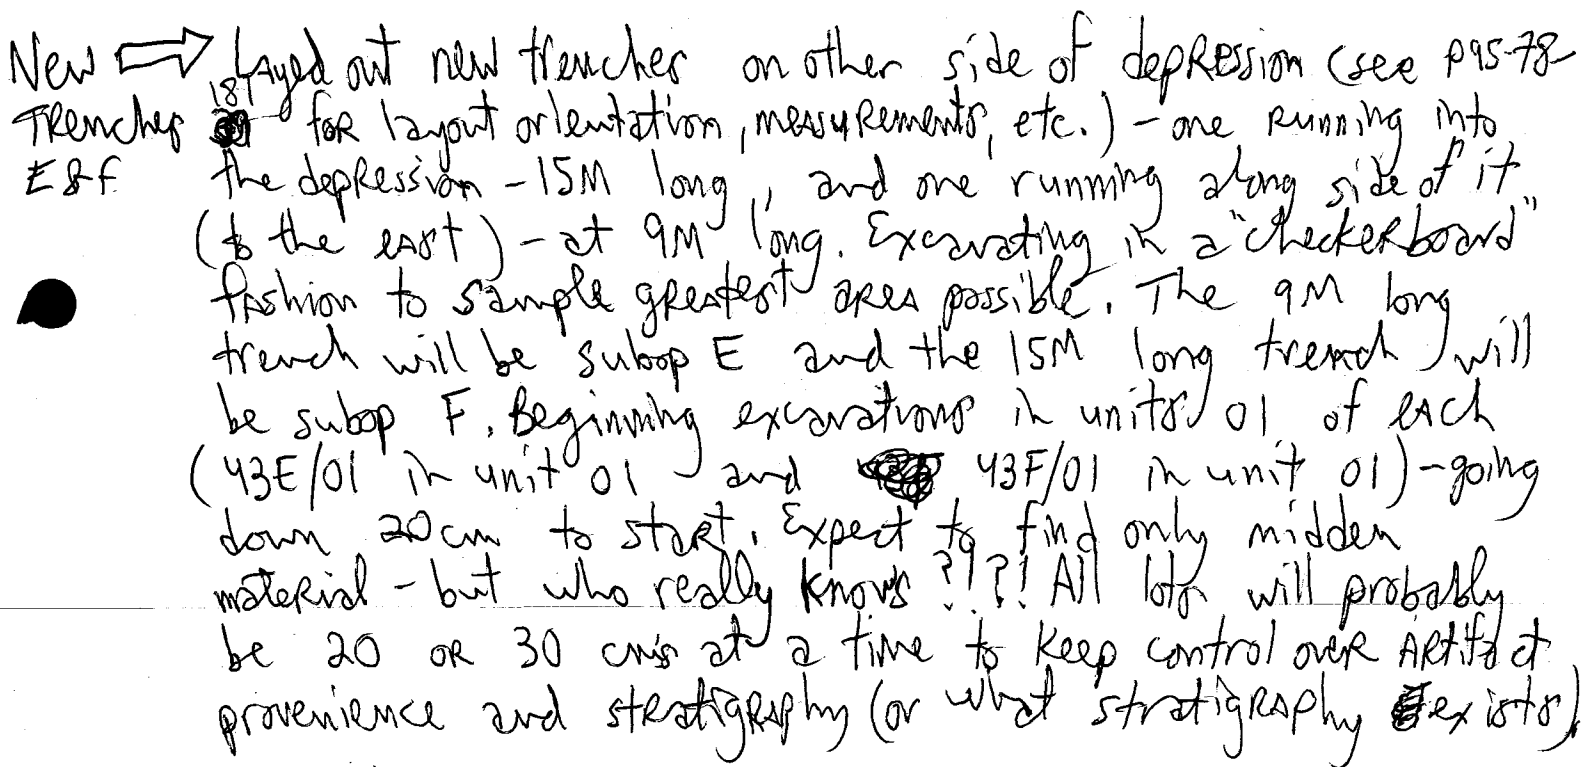 New ⇒ Layed out new trenches on other side of depression (see p95-78-
Trenches 181 for layout orientation, measurements, etc.) - one running into
E&F the depression - 15M long, and one running along side of it
(to the east) - at 9M long. Excavating in a "checkerboard"
fashion to sample greatest area possible. The 9M long
trench will be subop E and the 15M long trench will
be subop F. Beginning excavations in units 01 of each
(43E/01 in unit 01 and 43F/01 in unit 01) - going
down 20cm to start. Expect to find only midden
material - but who really knows ?!?! All lots will probably
be 20 or 30 cms at a time to keep control over artifact
provenience and stratigraphy (or what stratigraphy exists).